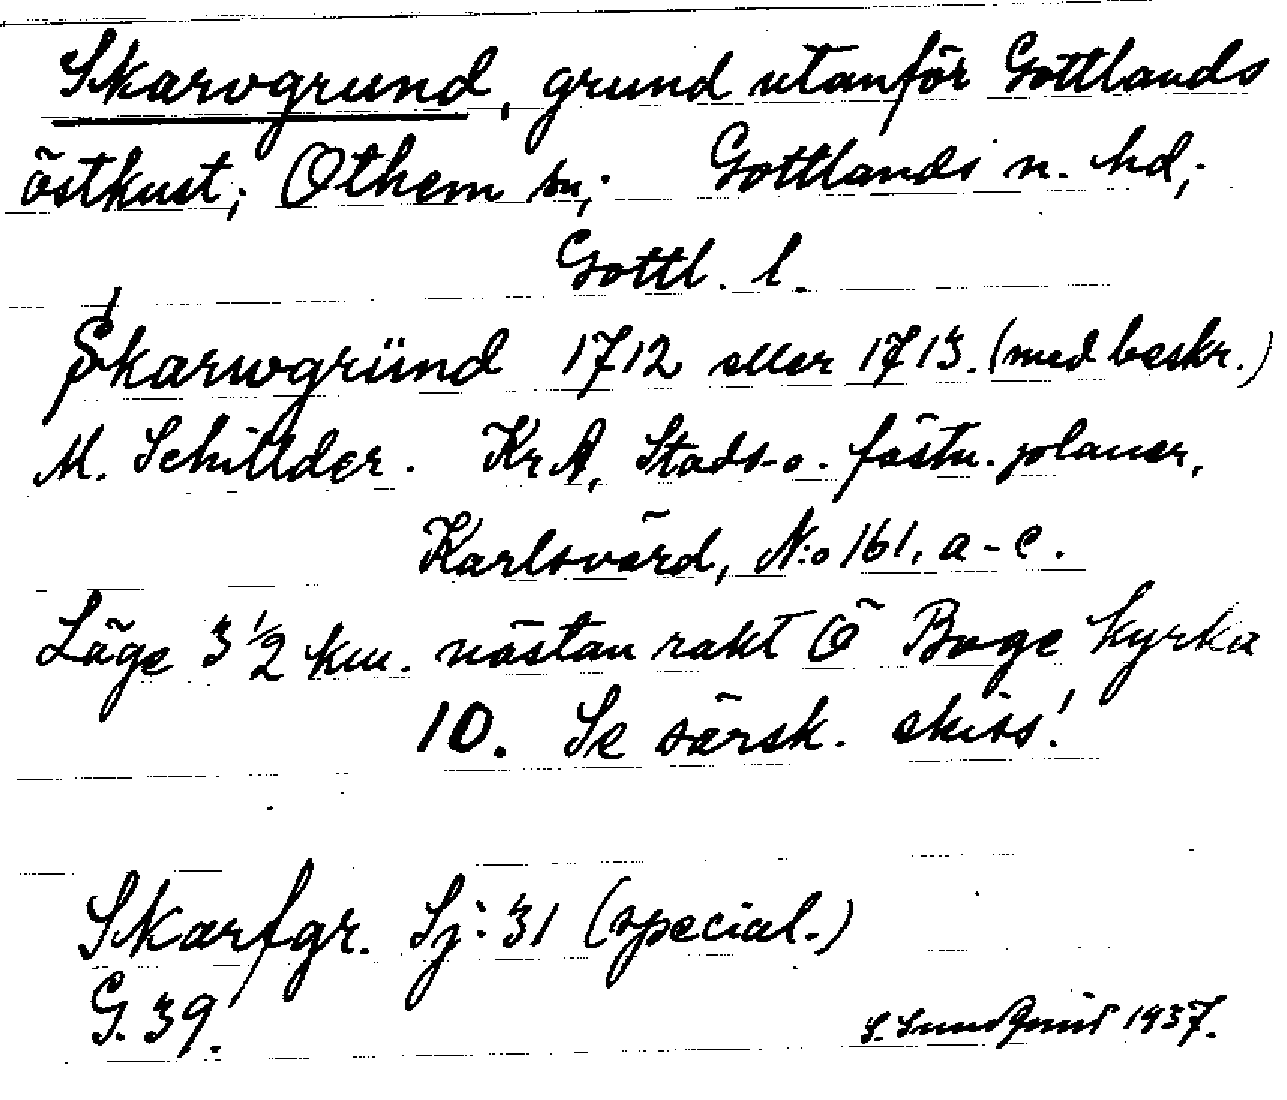 Skarvgrund, grund utanför Gottlands
östkust; Othem sn; Gottlands n. hd;
Gottl. l.
Skarwgründ 1712 eller 1713. (med beskr.)
M. Schilder. KrA, Stads- o. fästn. planer,
Karlsvärd, N:o 161, a-c.
Läge 3 1/2 km. nästan rakt Ö Boge kyrka
10. Se särsk. skiss!
Skarfgr. Sj: 31 (special.)
G. 39.
S. Lundquist 1937.